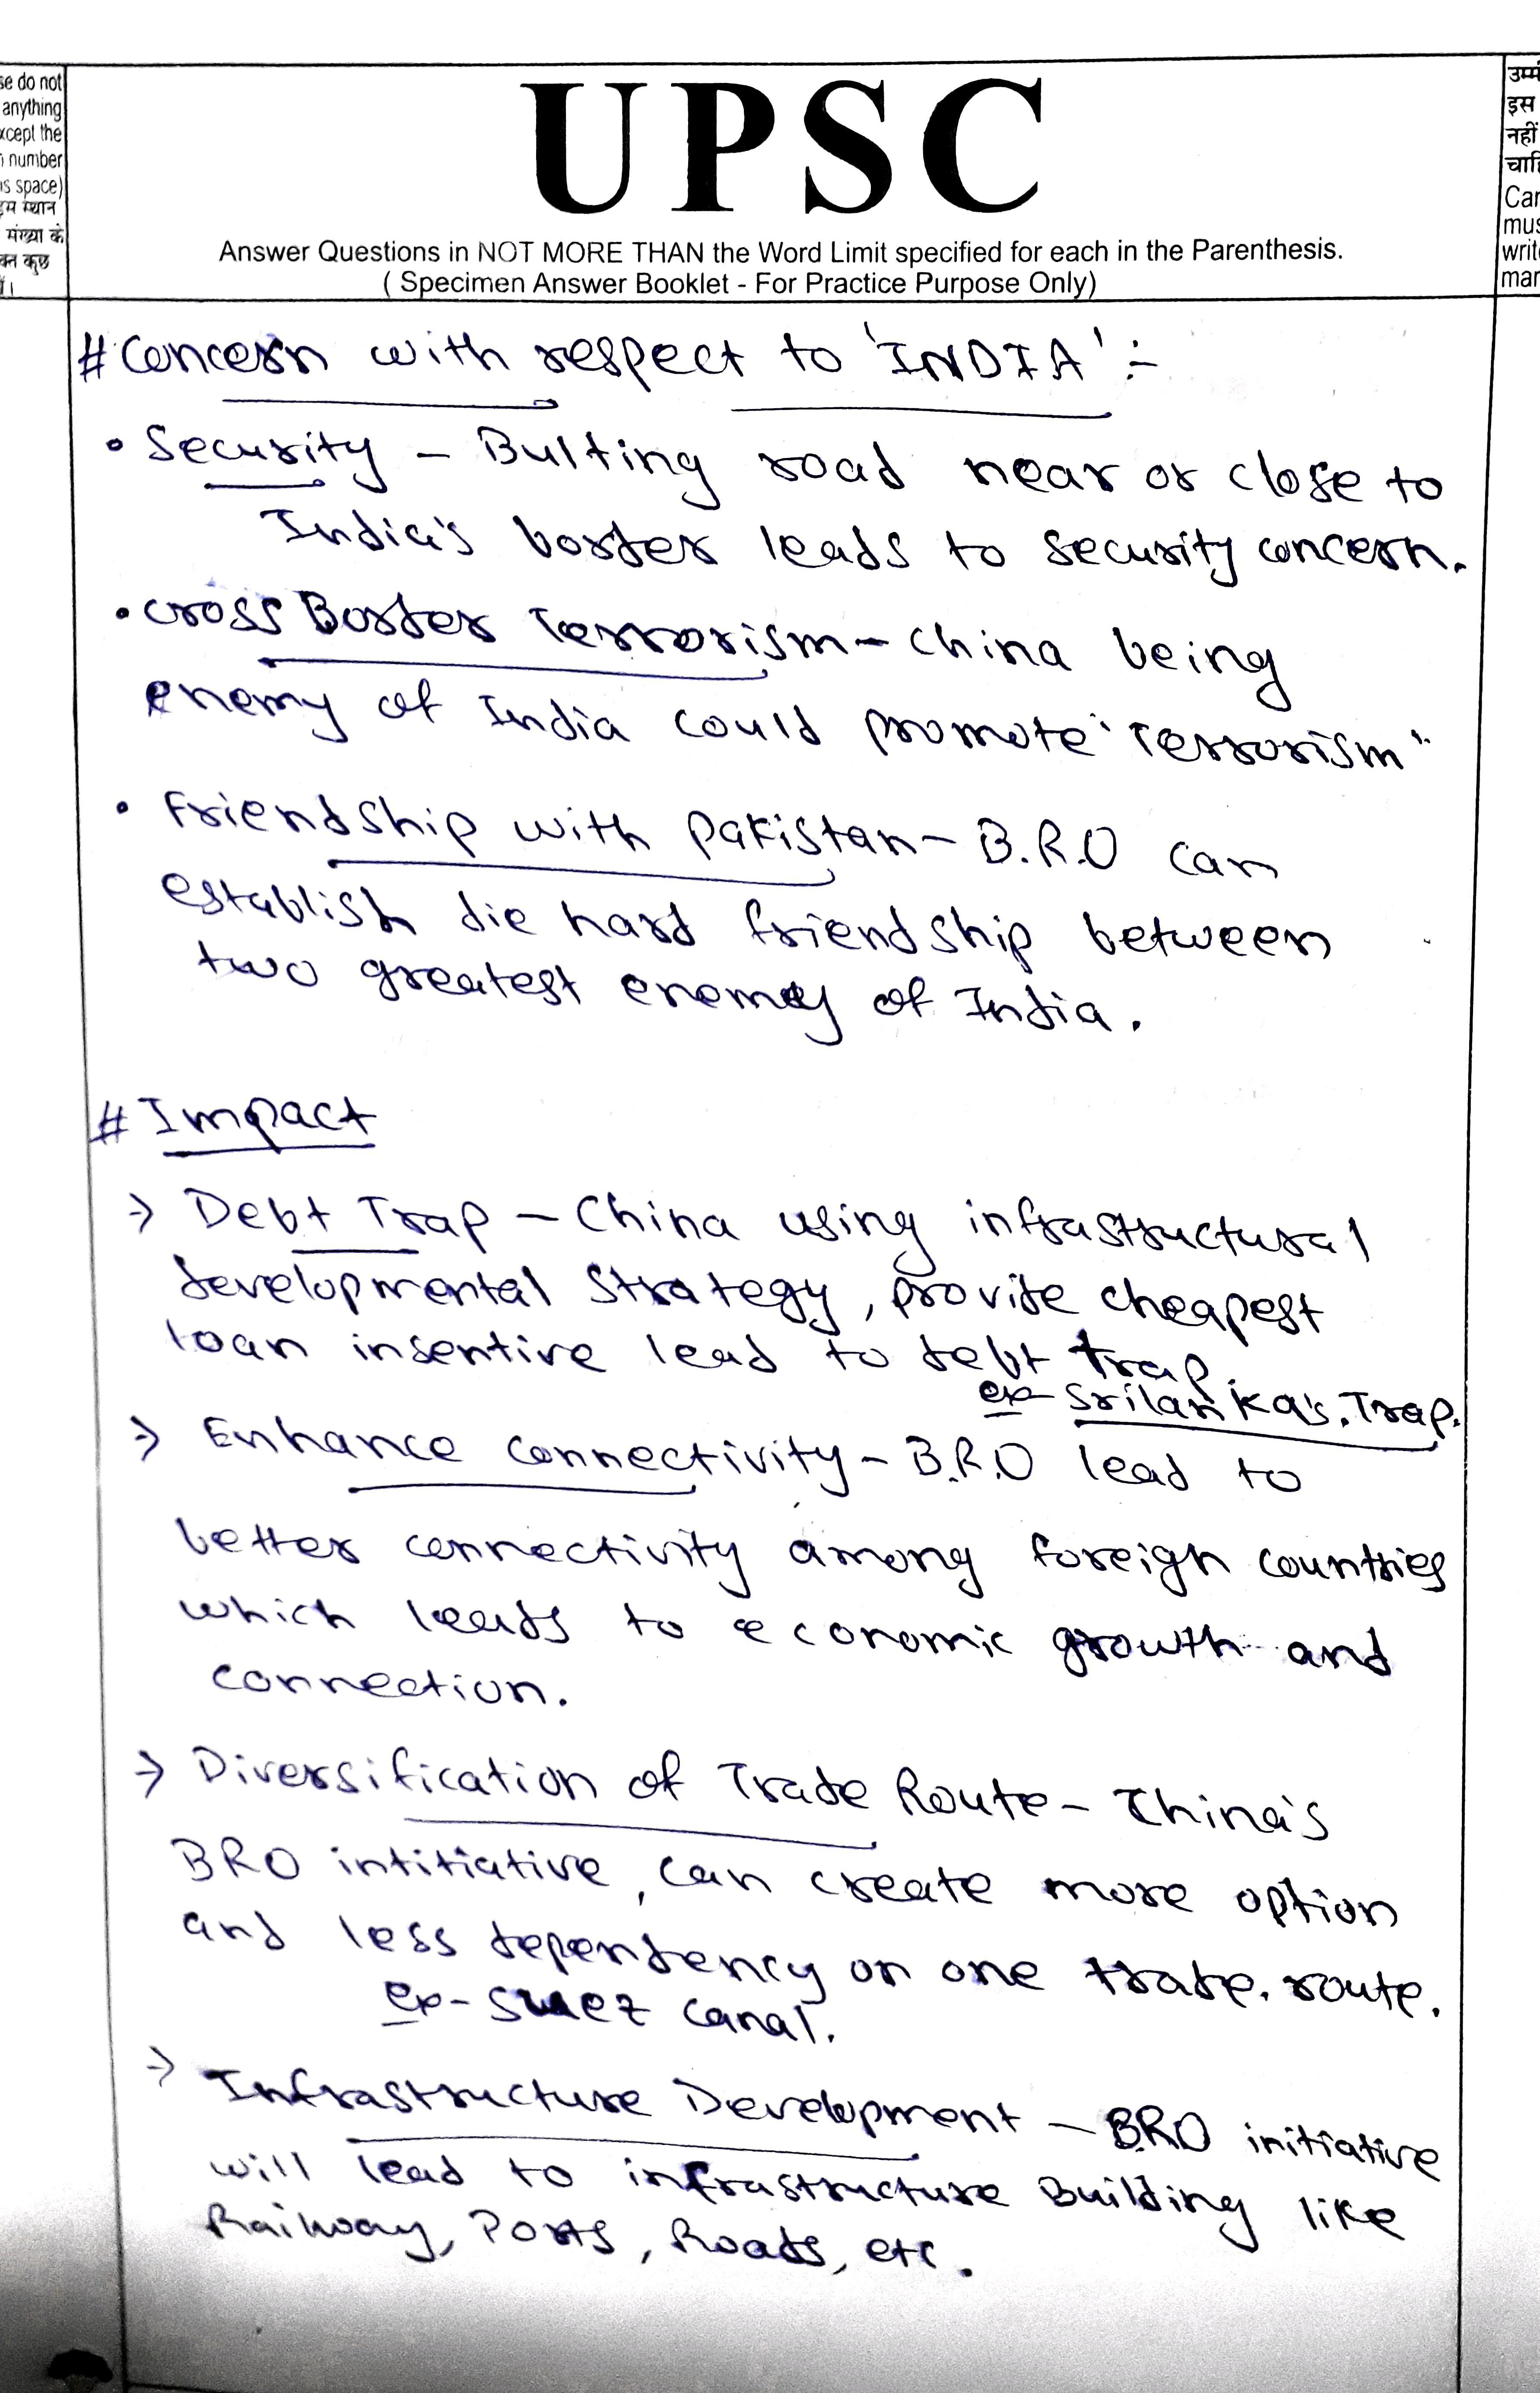 se do not
anything
xcept the
n number
is space)
स्थान
संख्या के
कुछ
उम्मी
इस
नहीं
चाहि
Can
mus
write
mar
UPSC
Answer Questions in NOT MORE THAN the Word Limit specified for each in the Parenthesis.
( Specimen Answer Booklet - For Practice Purpose Only)
# Concern with respect to 'INDIA' :-
• Security - Bulting road near or close to
India's border leads to security concern.
• Cross Border Terrorism - China being
enemy of India could promote "Terrorism"
• Friendship with Pakistan - B.R.O can
establish die hard friendship between
two greatest enemey of India.
# Impact
→ Debt Trap - China using infrastructural
developmental strategy, provide cheapest
loan insentive lead to debt trap.
ex- Srilanka's. Trap.
→ Enhance connectivity - B.R.O lead to
better connectivity among foreign countries
which leads to economic growth and
connection.
→ Diversification of Trade Route - China's
BRO intitiative, can create more option
and less dependency on one trade. route.
ex- Suez Canal.
→ Infrastructure Development - BRO initiative
will lead to infrastructure Building like
Railway, Ports, Roads, etc.